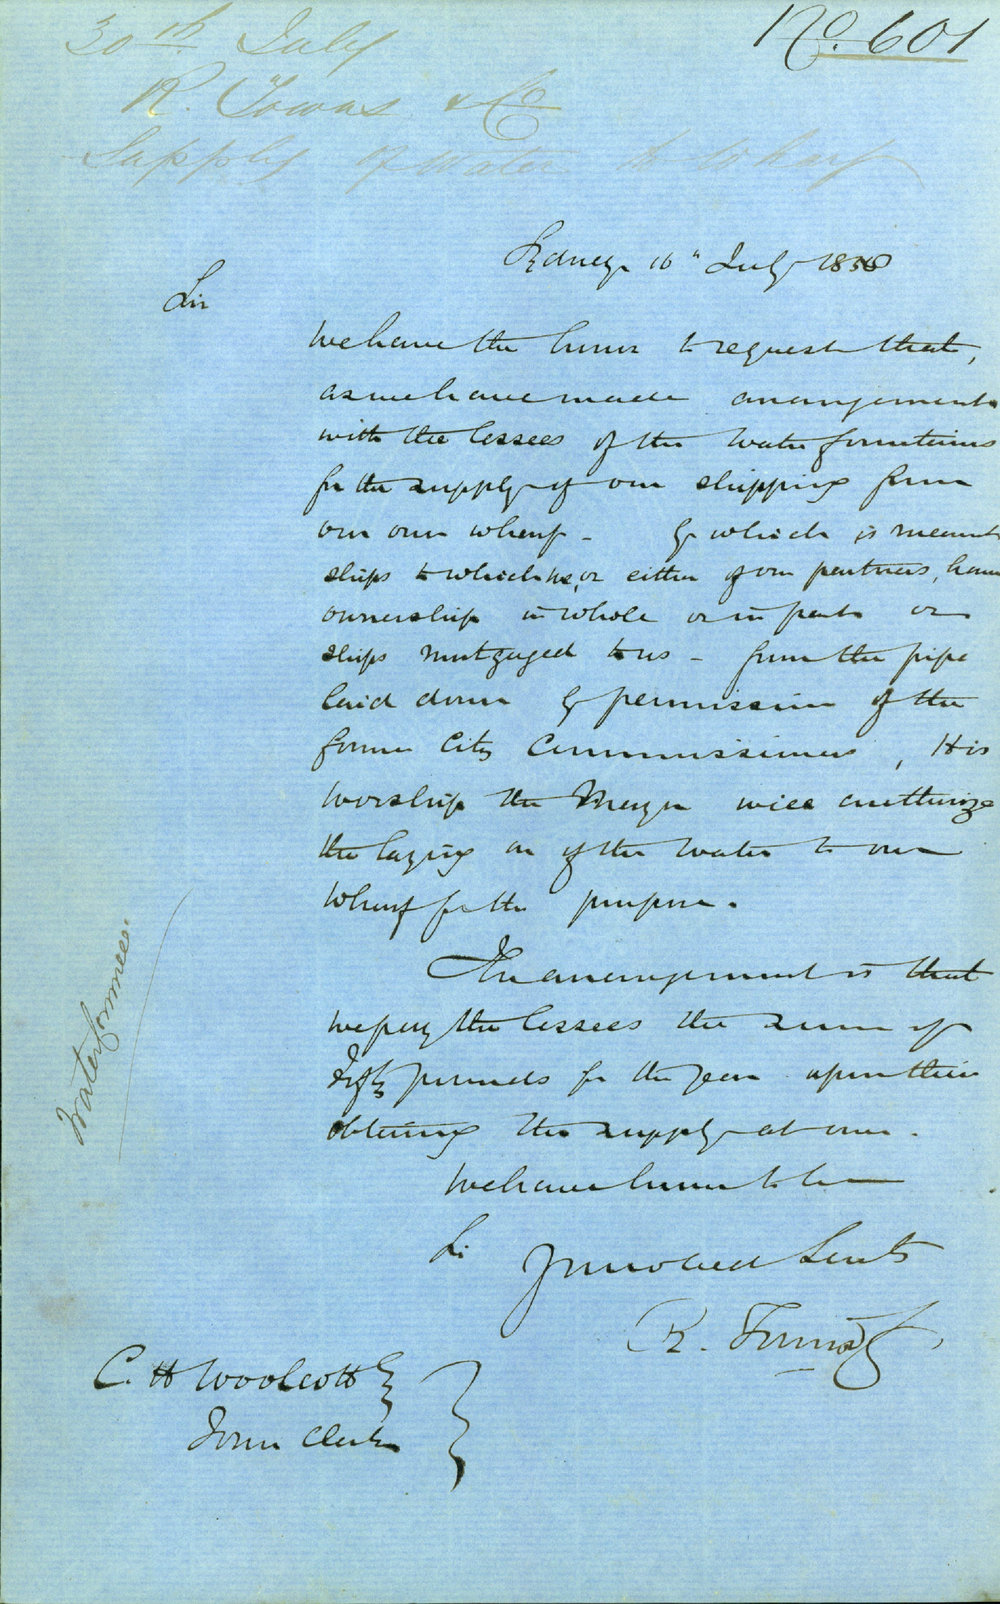 No. 601
30th July
R. Towns & Co
Supply of Water to Wharf
Sydney 16" July 1858
Sir
We have the honor to request that,
as we have made arrangements
with the lessees of the Water fountains
for the supply of our shipping from
our own wharf - by which is meant
ships to which we, or either of our partners, have
ownership in whole or in part or
ships mortgaged to us - from the pipe
laid down by permission of the
former City Commissioners, His
Worship the Mayor will authorize
the laying on of the water to our
Wharf for the purpose.
The arrangement is that
we pay the lessees the sum of
Fifty pounds for the year upon their
obtaining the supply at once.
We have honor to be
Sir
Your obed Servts
R. Towns & Co
Water Committee.
C. H Woolcott Esq
Town Clerk